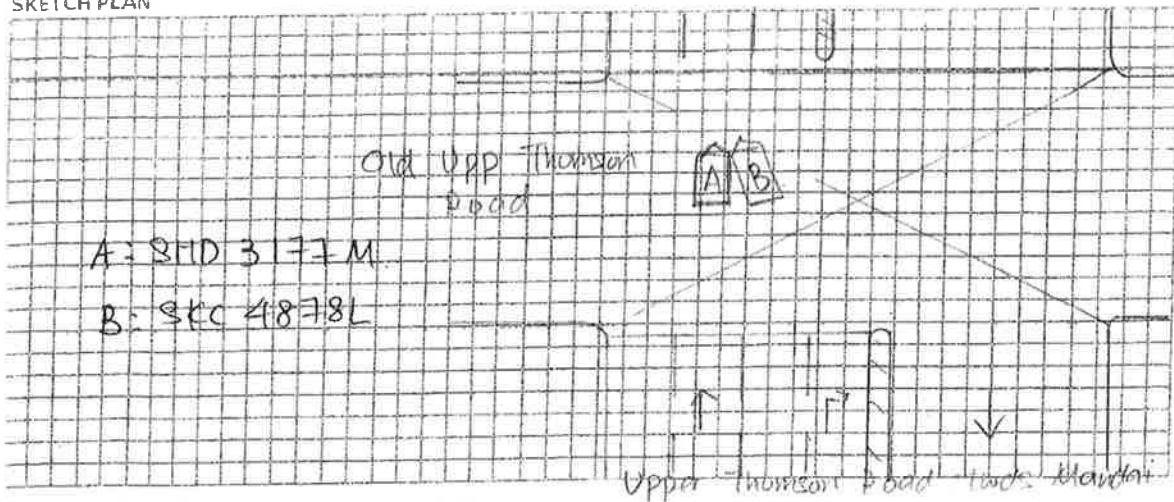 SKETCH PLAN
Old Upp Thomson
Road
A
B
A: SHD 3177M
B: SKC 4878L
Upper Thomson Road twds Mandai